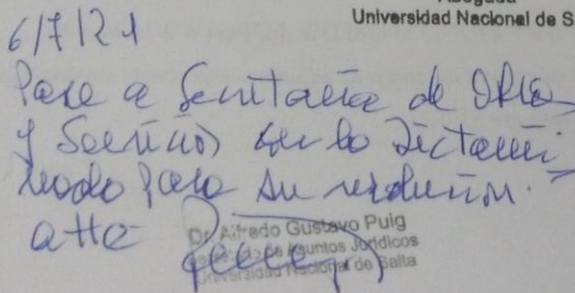 Abogada
Universidad Nacional de S
6/7/21
Pase a Secretaría de Obras
y Servicios con lo dictami-
nado para su resolución.
atte
Dr. Alfredo Gustavo Puig
de Asuntos Jurídicos
Universidad Nacional de Salta